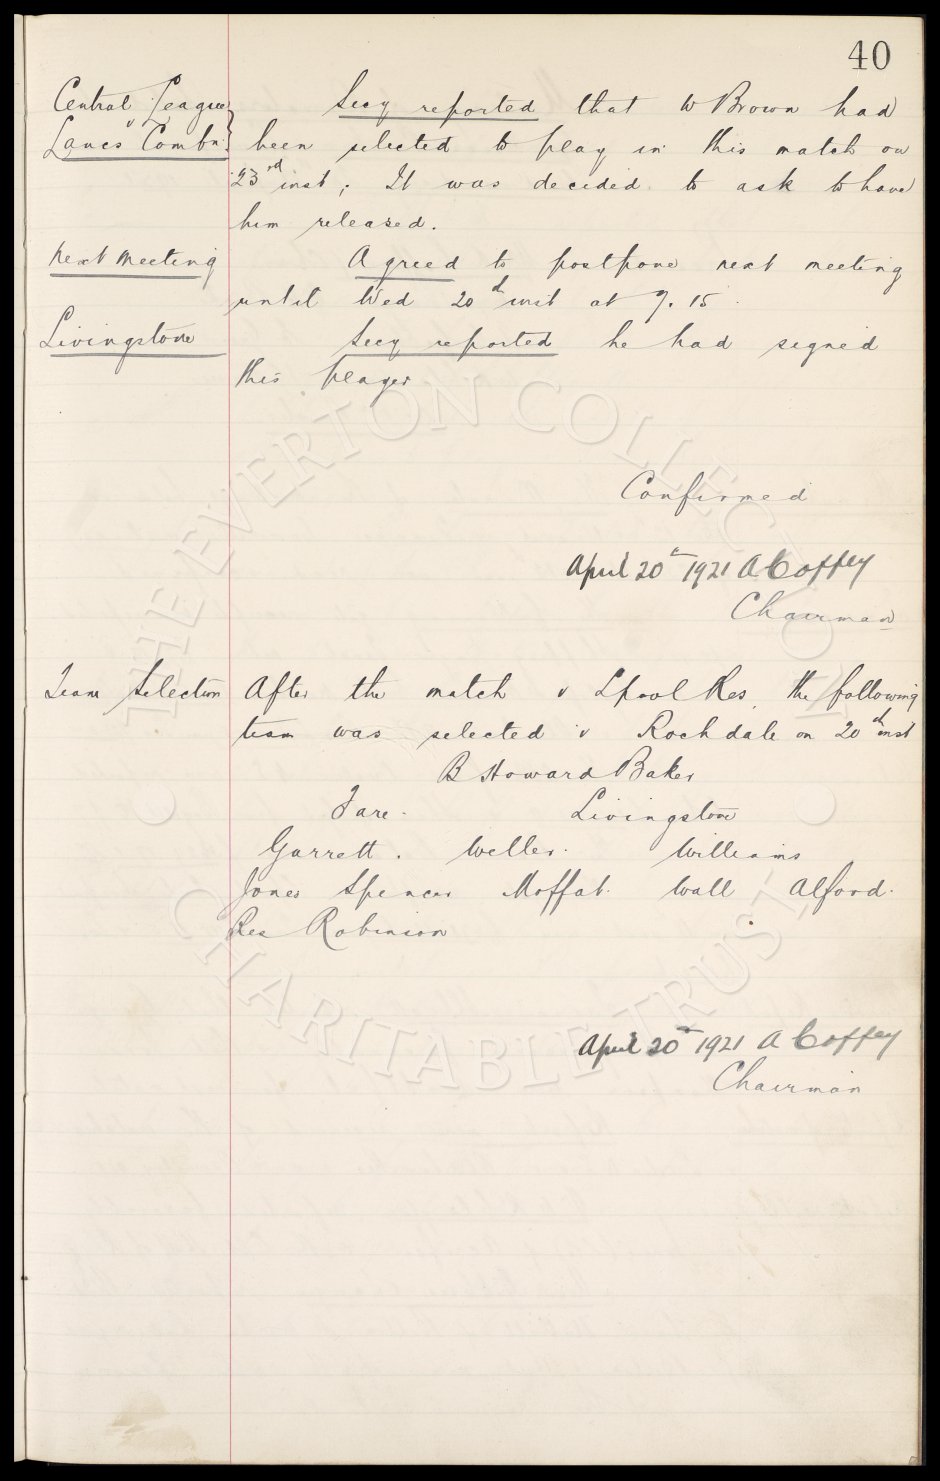 40
Central League
v
Lancs Combn.
Secy reported that W Brown had
been selected to play in this match on
23rd inst; It was decided to ask to have
him released.
Next Meeting
Agreed to postpone next meeting
until Wed 20th inst at 7.15.
Livingstone
Secy reported he had signed
this player
Confirmed
April 20th 1921 A Coffey
Chairman
Team Selection
After the match v Lpool Res, the following
team was selected v Rochdale on 20th inst
B Howard Baker
Fare. Livingstone
Garrett. Weller. Williams
Jones Spencer Moffat. Wall Alford.
Res Robinson
April 20th 1921 A Coffey
Chairman
THE EVERTON COLLECTION
CHARITABLE TRUST